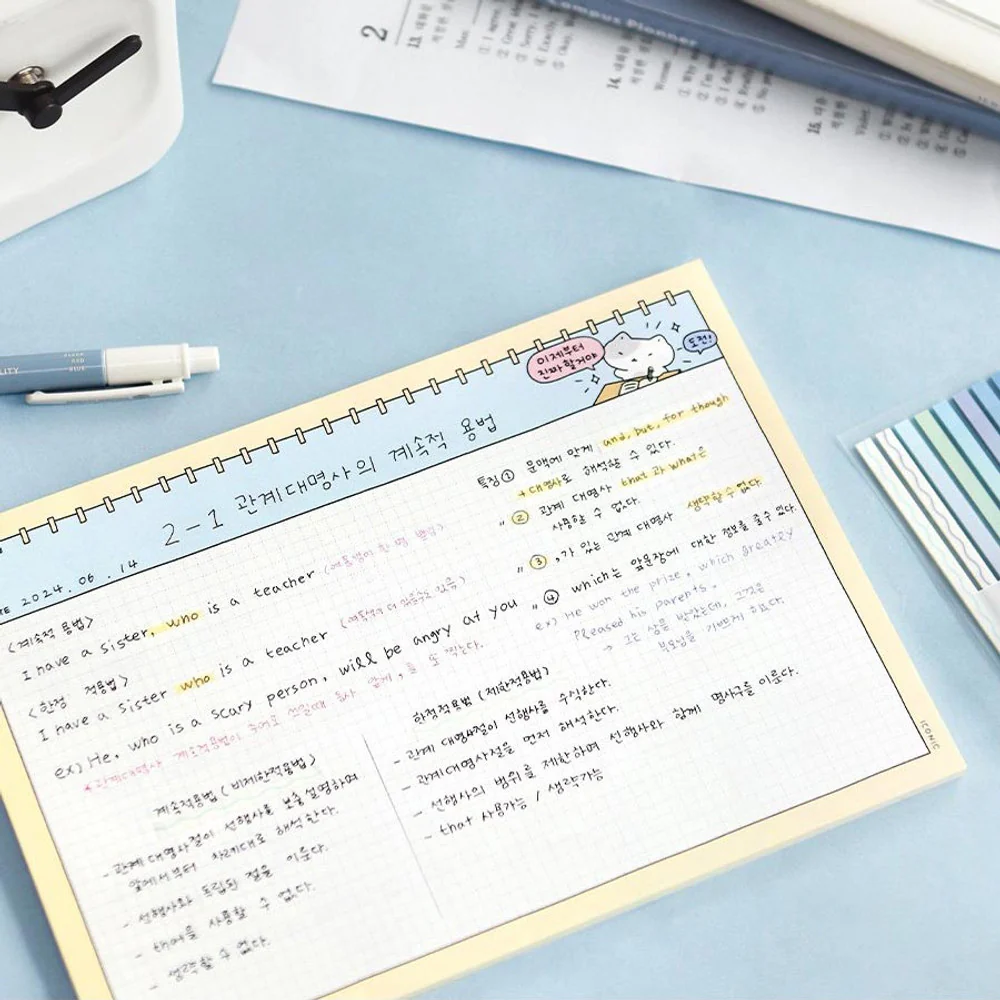 Campus Planner
2
13. 대화의
Man:
① I agree
② Great
③ Sorry, I
④ Exactly,
⑤ Okay,
14. 대화의
Woman:
① Why
② I'm
③ I do
④ Really
⑤ No
15. 다음
Violet
이제부터
진짜 할거야
도전!
2-1 관계대명사의 계속적 용법
2024. 06. 14
<계속적 용법>
I have a sister, who is a teacher (여동생이 한 명 뿐임)
<한정 적용법>
I have a sister who is a teacher (여동생이 더 있을수도 있음)
ex) He, who is a scary person, will be angry at you
*관계대명사 계속적용법이 주어로 쓰일때 동사 앞에 , 를 또 찍는다.
특징① 문맥에 맞게 and, but, for though
+대명사로 해석할 수 있다.
" ② 관계 대명사 that과 what은
사용할 수 없다.
" ③ ,가 있는 관계 대명사 생략할 수 없다.
" ④ which는 앞문장에 대한 정보를 줄 수 있다.
ex) He won the prize, which greatly
pleased his parents.
→ 그는 상을 받았는데, 그것은
부모님을 기쁘게 했다
계속적용법 (비제한적용법)
- 관계대명사절이 선행사를 보충설명하며
앞에서부터 차례대로 해석한다.
- 선행사와 독립된 절을 이룬다.
- that을 사용할 수 없다.
- 생략할 수 없다.
한정적용법 (제한적용법)
- 관계 대명사절이 선행사를 수식한다.
- 관계대명사절을 먼저 해석한다.
- 선행사의 범위를 제한하며 선행사와 함께 명사구를 이룬다.
- that 사용가능 / 생략가능
ICONIC